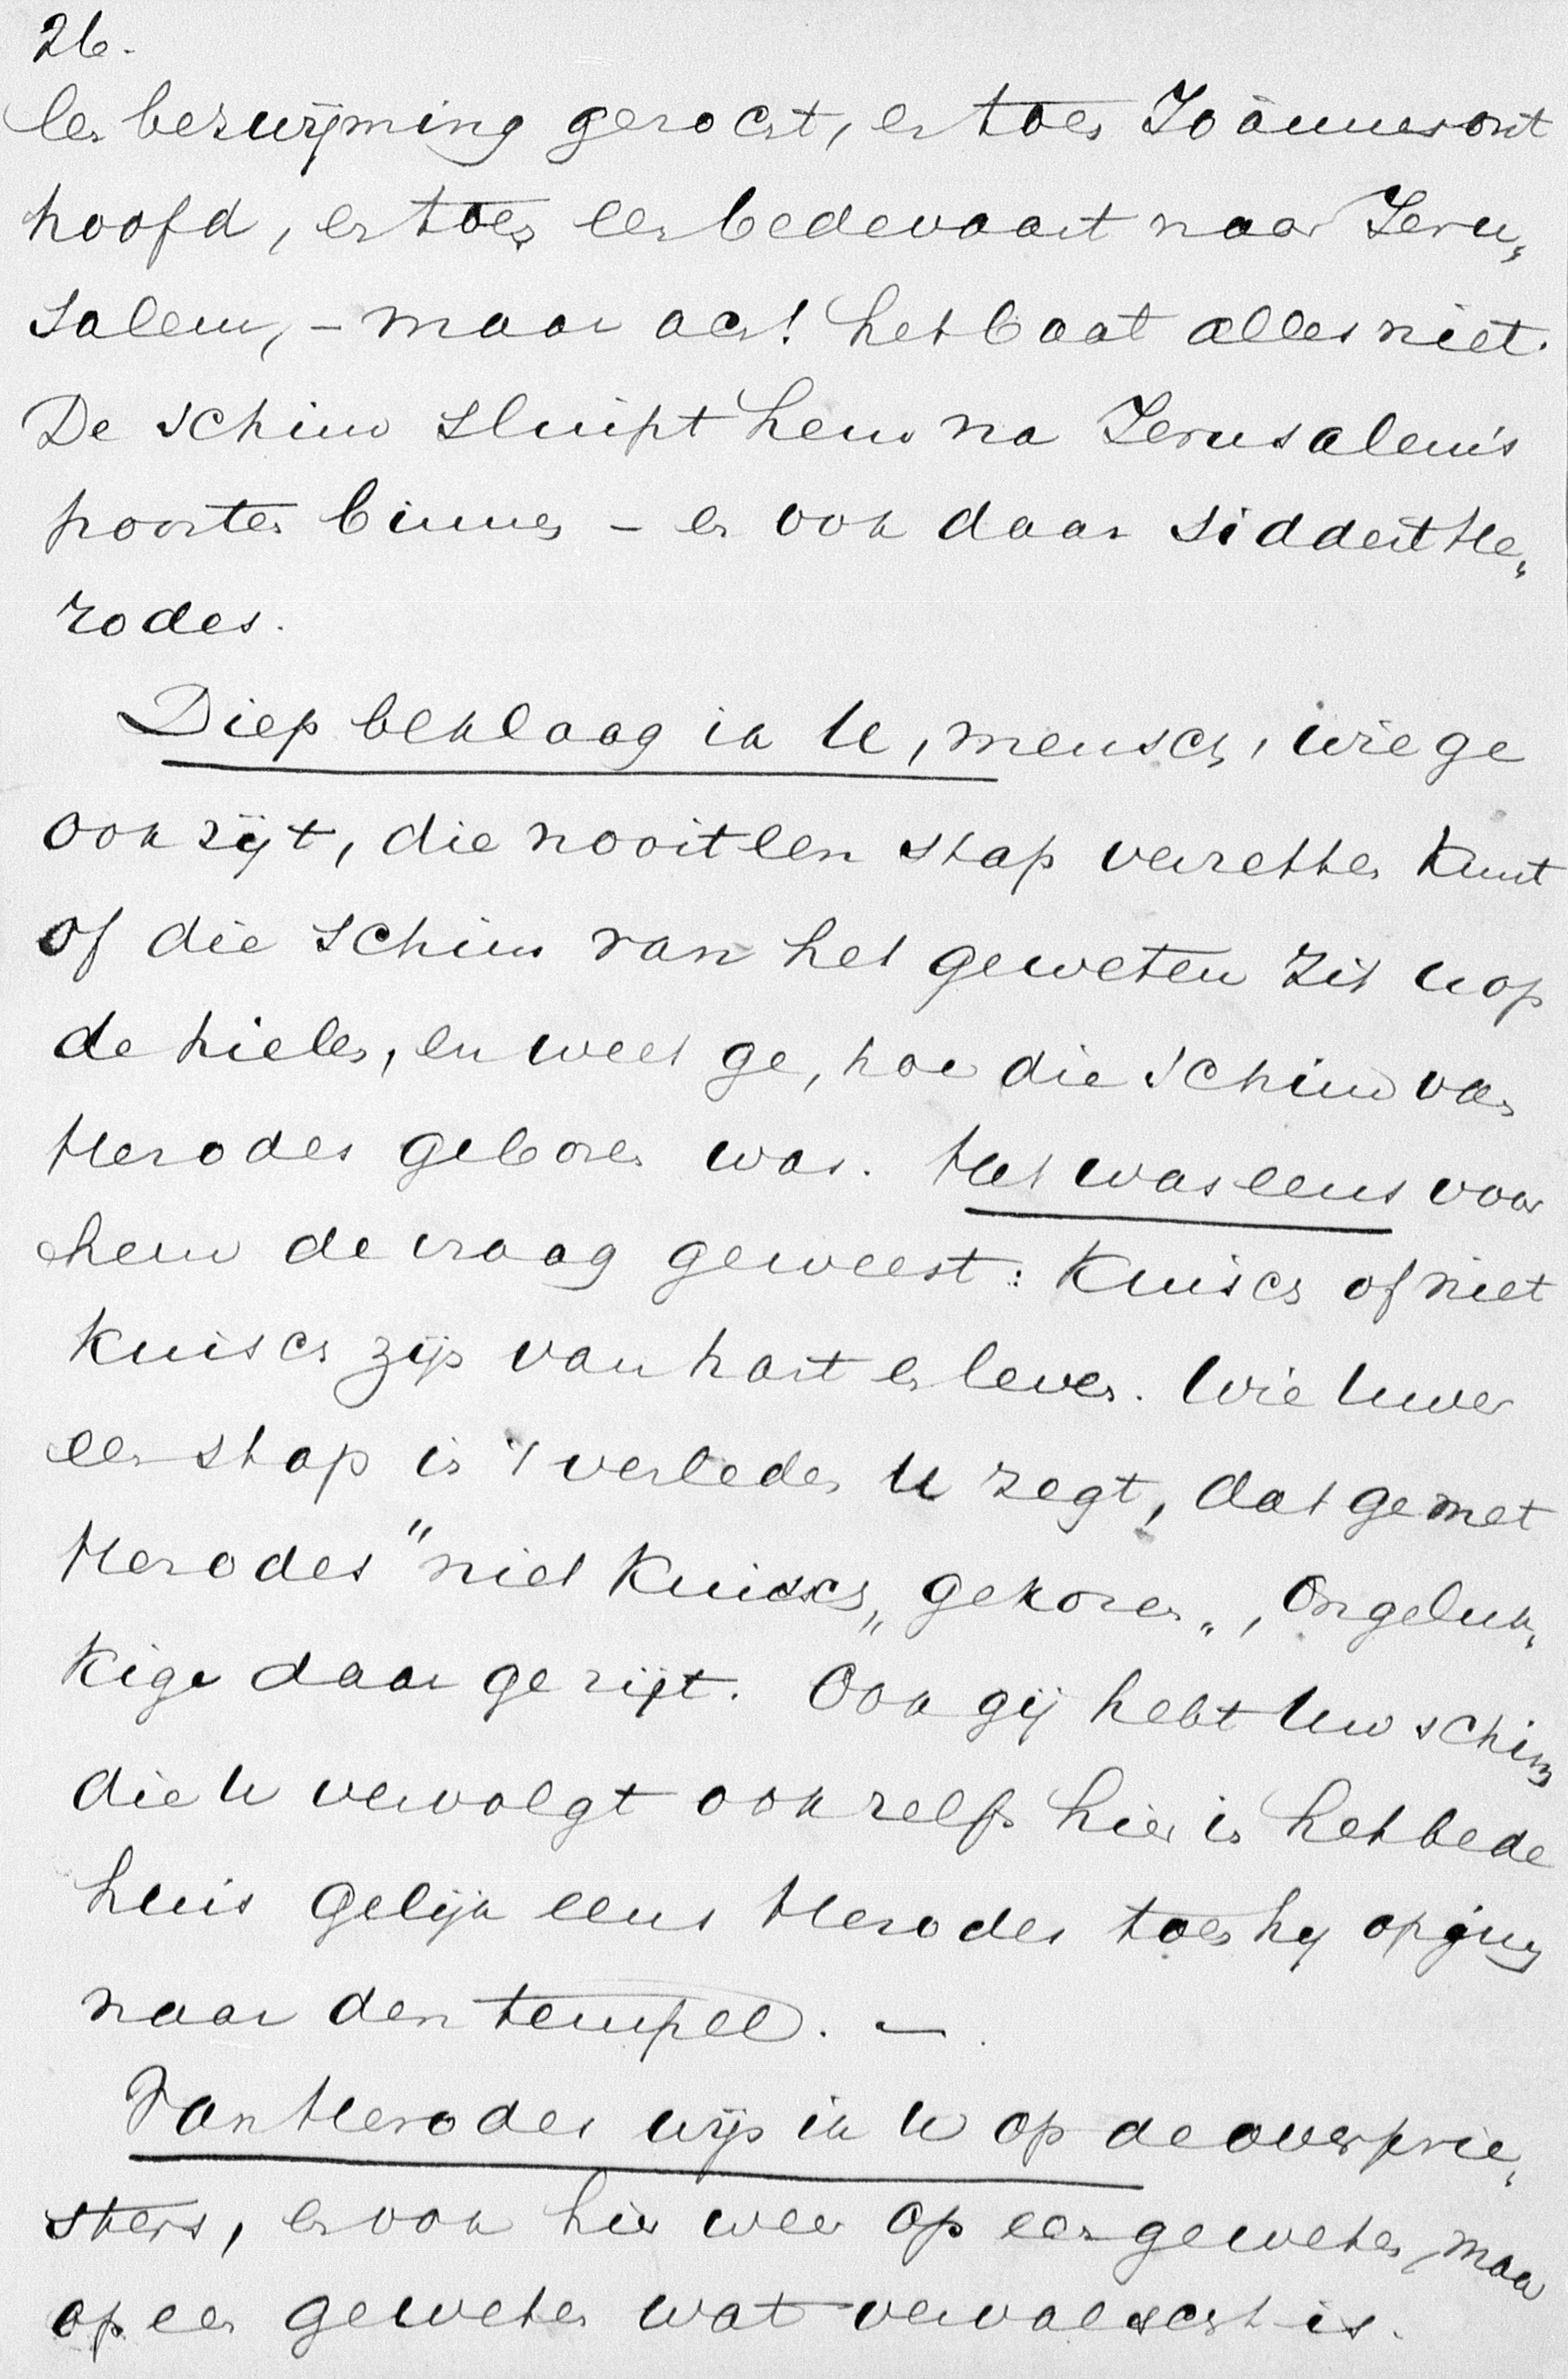 26.
len bezwijming gezocht, en toen Joännes ont
hoofd, en toen een bedevaart naar Jeru„
salem, – maar ach! het baat alles niet.
De schim sluipt hem na Jerusalem's
poorten binnen – en ook daar siddert He„
rodes.
Diep beklaag ik U, mensch, wie ge
ook zijt, die nooit een stap verzetten kunt
of die schim van het geweten zit u op
de hielen, en weet ge, hoe die schim van
Herodes geboren was. Het was eens voor
hem de vraag geweest: Kuisch of niet
Kuisch zijn van hart en leven. Wie Uwer
een stap in 't verleden U zegt, dat ge met
Herodes "niet Kuisch„ gekozen„, Ongeluk„
kige daar ge zijt. Ook gij hebt Uw schim
die U vervolgt ook zelfs hier in het bede
huis gelijk eens Herodes toen hij opging
naar den tempel. –
Van Herodes wijs ik U op de overprie„
sters, en ook hier weer op een geweten, maar
op een geweten wat vervalscht is.